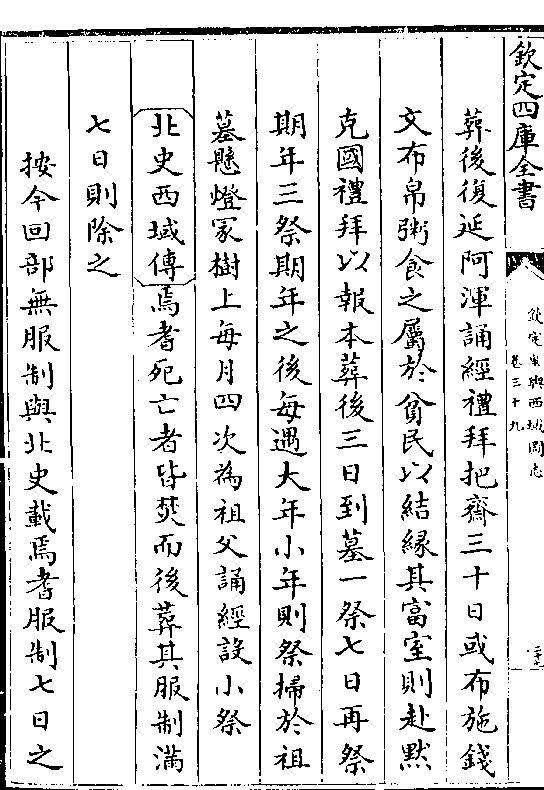 欽定四庫全書
欽定皇輿西域圖志
卷三十九
葬後復延阿渾誦經禮拜把齋三十日或布施錢
文布帛粥食之屬於貧民以結緣其富室則赴默
克國禮拜以報本葬後三日到墓一祭七日再祭
期年三祭期年之後每遇大年小年則祭掃於祖
墓懸燈冢樹上每月四次為祖父誦經設小祭
北史西域傳焉耆死亡者皆焚而後葬其服制滿
七日則除之
按今回部無服制與北史載焉耆服制七日之